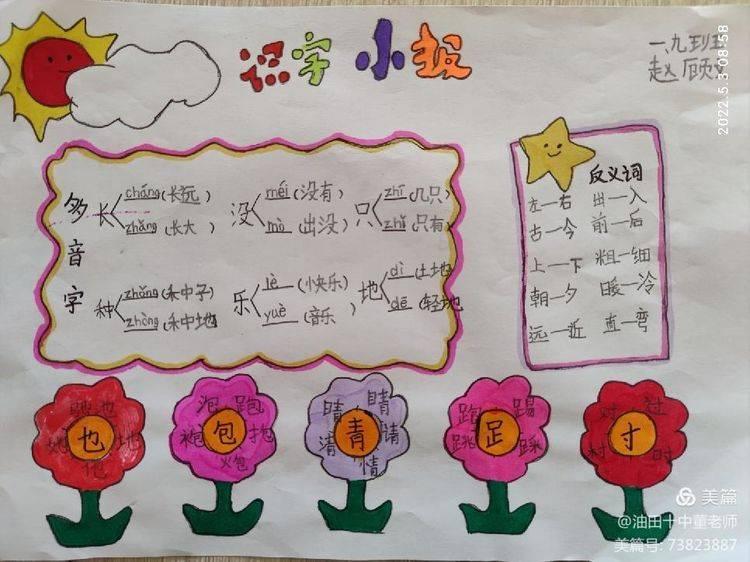 识字 小报
一.九班
赵顾
2022.5.3 08:58
多音字
长 cháng(长远) zhǎng(长大)
没 méi(没有) mò(出没)
只 zhī(几只) zhǐ(只有)
种 zhǒng(种子) zhòng(种地)
乐 lè(快乐) yuè(音乐)
地 dì(土地) de(轻地)
反义词
左—右 出—入
古—今 前—后
上—下 粗—细
朝—夕 暖—冷
远—近 直—弯
也 她 他 地 也
包 泡 跑 袍 抱 炮
青 睛 晴 清 请 情
足 跑 踢 跳 踩
寸 对 过 村 时
美篇
@油田十中董老师
美篇号: 73823887